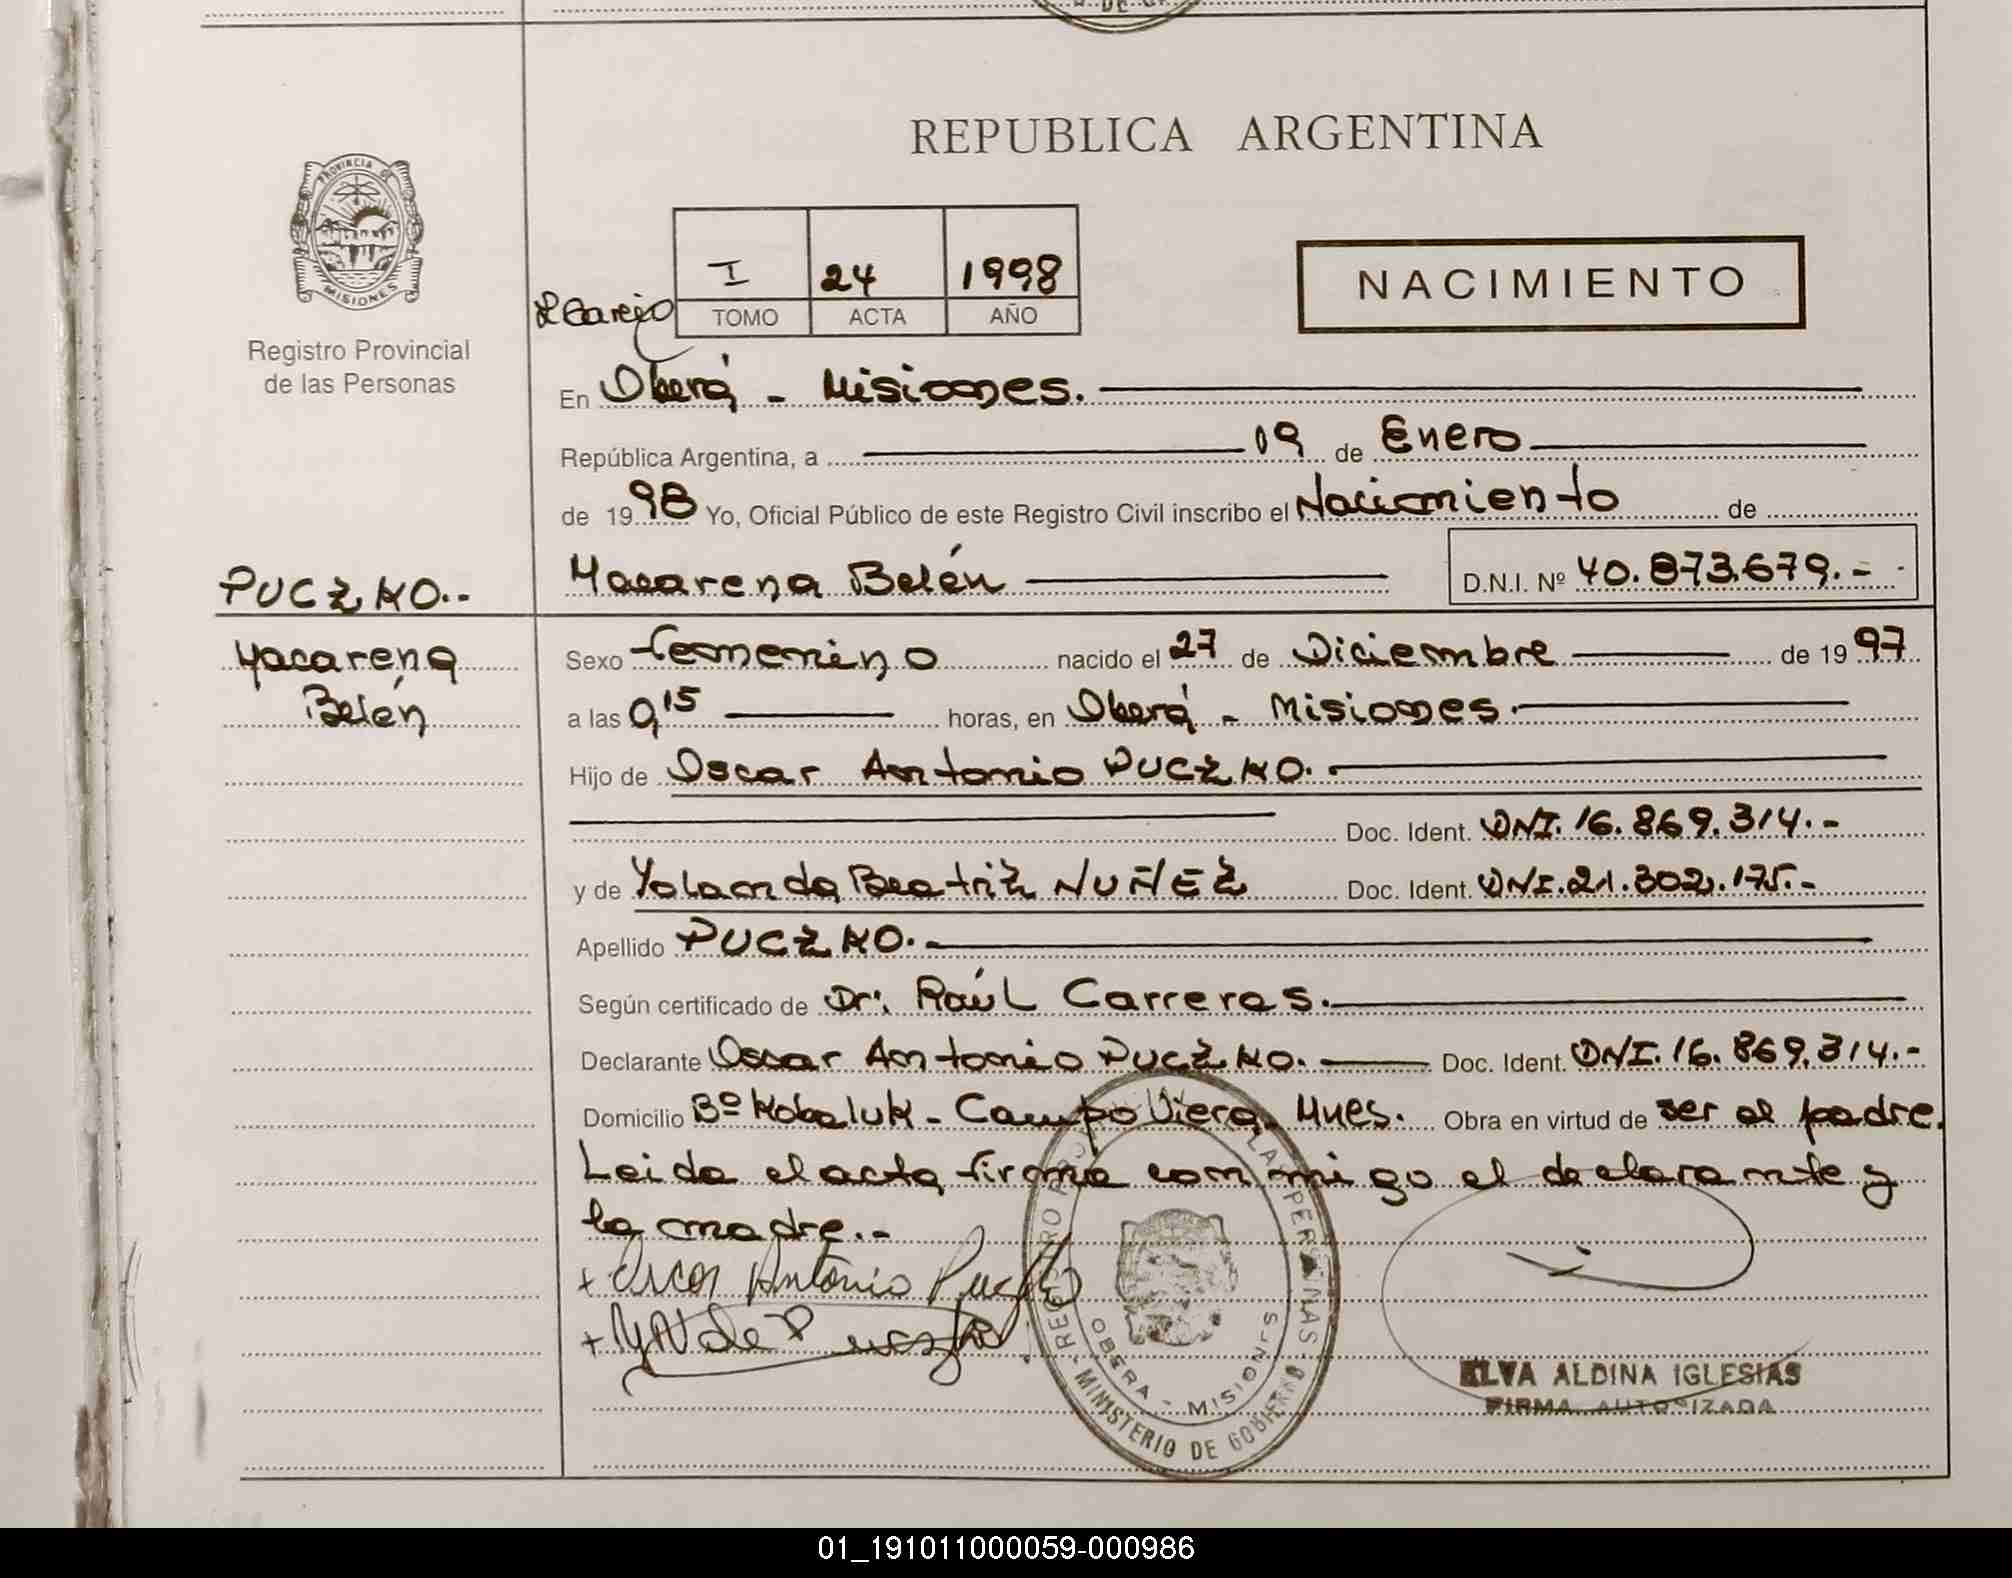 REPUBLICA ARGENTINA
PROVINCIA DE
MISIONES
Registro Provincial
de las Personas
I 24 1998
TOMO ACTA AÑO
NACIMIENTO
En Oberá - Misiones.
República Argentina, a 09 de Enero
de 1998 Yo, Oficial Público de este Registro Civil inscribo el Nacimiento de
Macarena Belén D.N.I. Nº 40.873.679.-
PUCZKO.-
Macarena
Belén
Sexo femenino nacido el 27 de Diciembre de 1997
a las 0,15 horas, en Oberá - Misiones.
Hijo de Oscar Antonio PUCZKO.
Doc. Ident. DNI. 16.869.314.-
y de Yolanda Beatriz NUÑEZ Doc. Ident. DNI. 21.302.175.-
Apellido PUCZKO.-
Según certificado de Dr: Raúl Carreras.
Declarante Oscar Antonio PUCZKO. Doc. Ident. DNI. 16.869.314.-
Domicilio Bº Kobaluk - Campo Viera Mnes. Obra en virtud de ser el padre.
Leida el acta firma conmigo el declarante y
la madre.-
+ Oscar Antonio
REGISTRO LAS PERSONAS
OBERA - MISIONES
MINISTERIO DE GOBIERNO
ELVA ALDINA IGLESIAS
FIRMA AUTORIZADA
01_191011000059-000986